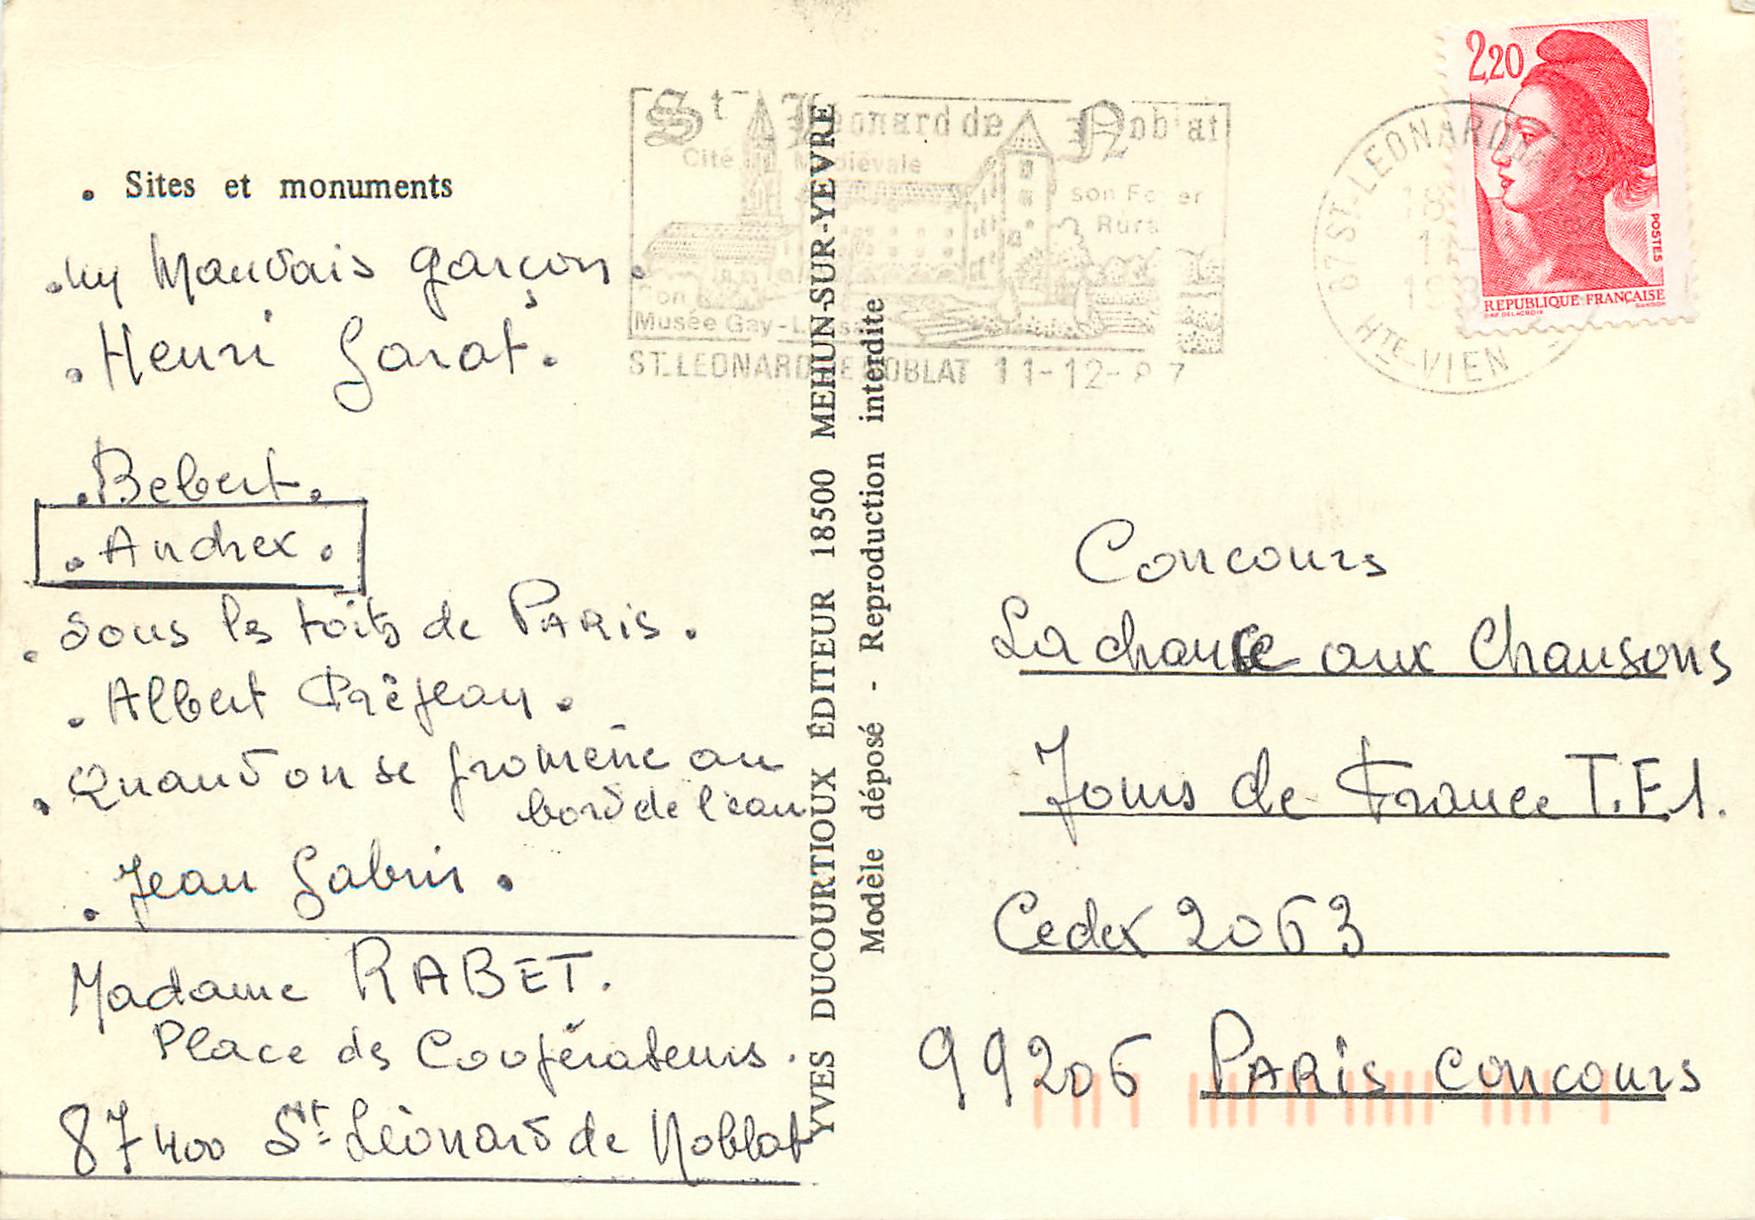 . Sites et monuments
. Un Mauvais garçon.
. Henri Garat.
. Bebert.
. Andrex.
. Sous les toits de PARIS.
. Albert Préjean.
. Quand on se promène au
bord de l'eau
. Jean Gabin.
Madame RABET.
Place des Coopérateurs.
87400 St. Léonard de Noblat
YVES DUCOURTIOUX ÉDITEUR 18500 MEHUN-SUR-YEVRE
Modèle déposé - Reproduction interdite
St Léonard de Noblat
Cité Médiévale
son Foyer
Rural
Son
Musée Gay-Lussac
ST.LEONARD DE NOBLAT 11-12-87
87 ST-LEONARD
18
HTE-VIEN
2,20
POSTES
REPUBLIQUE FRANÇAISE
Concours
La chance aux Chansons
Jours de France T.F1.
Cedex 2063
99206 PARIS CONCOURS